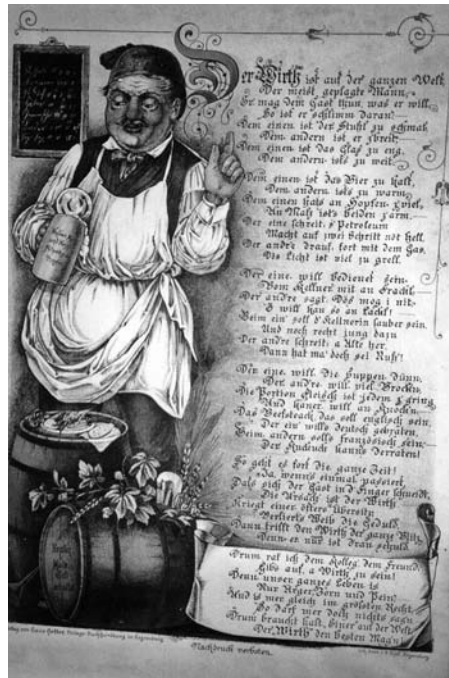 Der Wirth ist auf der ganzen Welt
Der meist geplagte Mann,
Er mag dem Gast thun, was er will,
So ist er schlimm daran!
Dem einen ist der Stuhl zu schmal,
Dem andern ist er z'breit;
Dem einen ist das Glas zu eng,
Dem andern ists zu weit.
Dem einen ist das Bier zu kalt,
Dem andern ists zu warm,
Dem einen hats an Hopfen z'viel,
An Malz ist's beiden z'arm.
Der eine schreit: 's Petroleum
Macht auf zwei Schritt not hell,
Der andre drauf: fort mit dem Gas,
Dis Licht ist viel zu grell.
Der eine will bedienet sein
Vom Kellner mit an Frackl,
Der andre sagt: Dös mog i nit,
I will kan so an Lackl!
Beim ein' soll d'Kellnerin sauber sein
Und noch recht jung dazu
Der andre schreit: a Alte her,
Dann hat ma' doch sei Ruh'!
Der eine will die Suppen dünn,
Der andre will viel Brocken
Die Portion Fleisch ist jedem z'gring
Und kaner will an Knoch'n.
Das Beefsteack, das soll englisch sein,
Der ein' will's deutsch gebraten,
Beim andern soll's französisch sein;
Der Kuckuck kann's derraten!
So geht es fort die ganze Zeit!
Ja, wenn's einmal passiert,
Daß sich der Gast in d'Finger schneid't,
Die Ursach' ist der Wirth
Kriegt einer öfters Übertrin
Verliert's Weib die Geduld,
Dann trifft den Wirth der ganze
Denn er nur ist dran schuld.
Drum rat ich dem Kolleg, dem Freund,
Gibs auf, a Wirth zu sein!
Denn unser ganzes Leben is
Nur Ärger, Zorn und Pein!
Und is mer gleich im größten Recht,
So darf mer doch nichts sag'n
Drum braucht halt Einer auf der Welt
Der Wirth den besten Mag'n!
Nachdruck verboten.